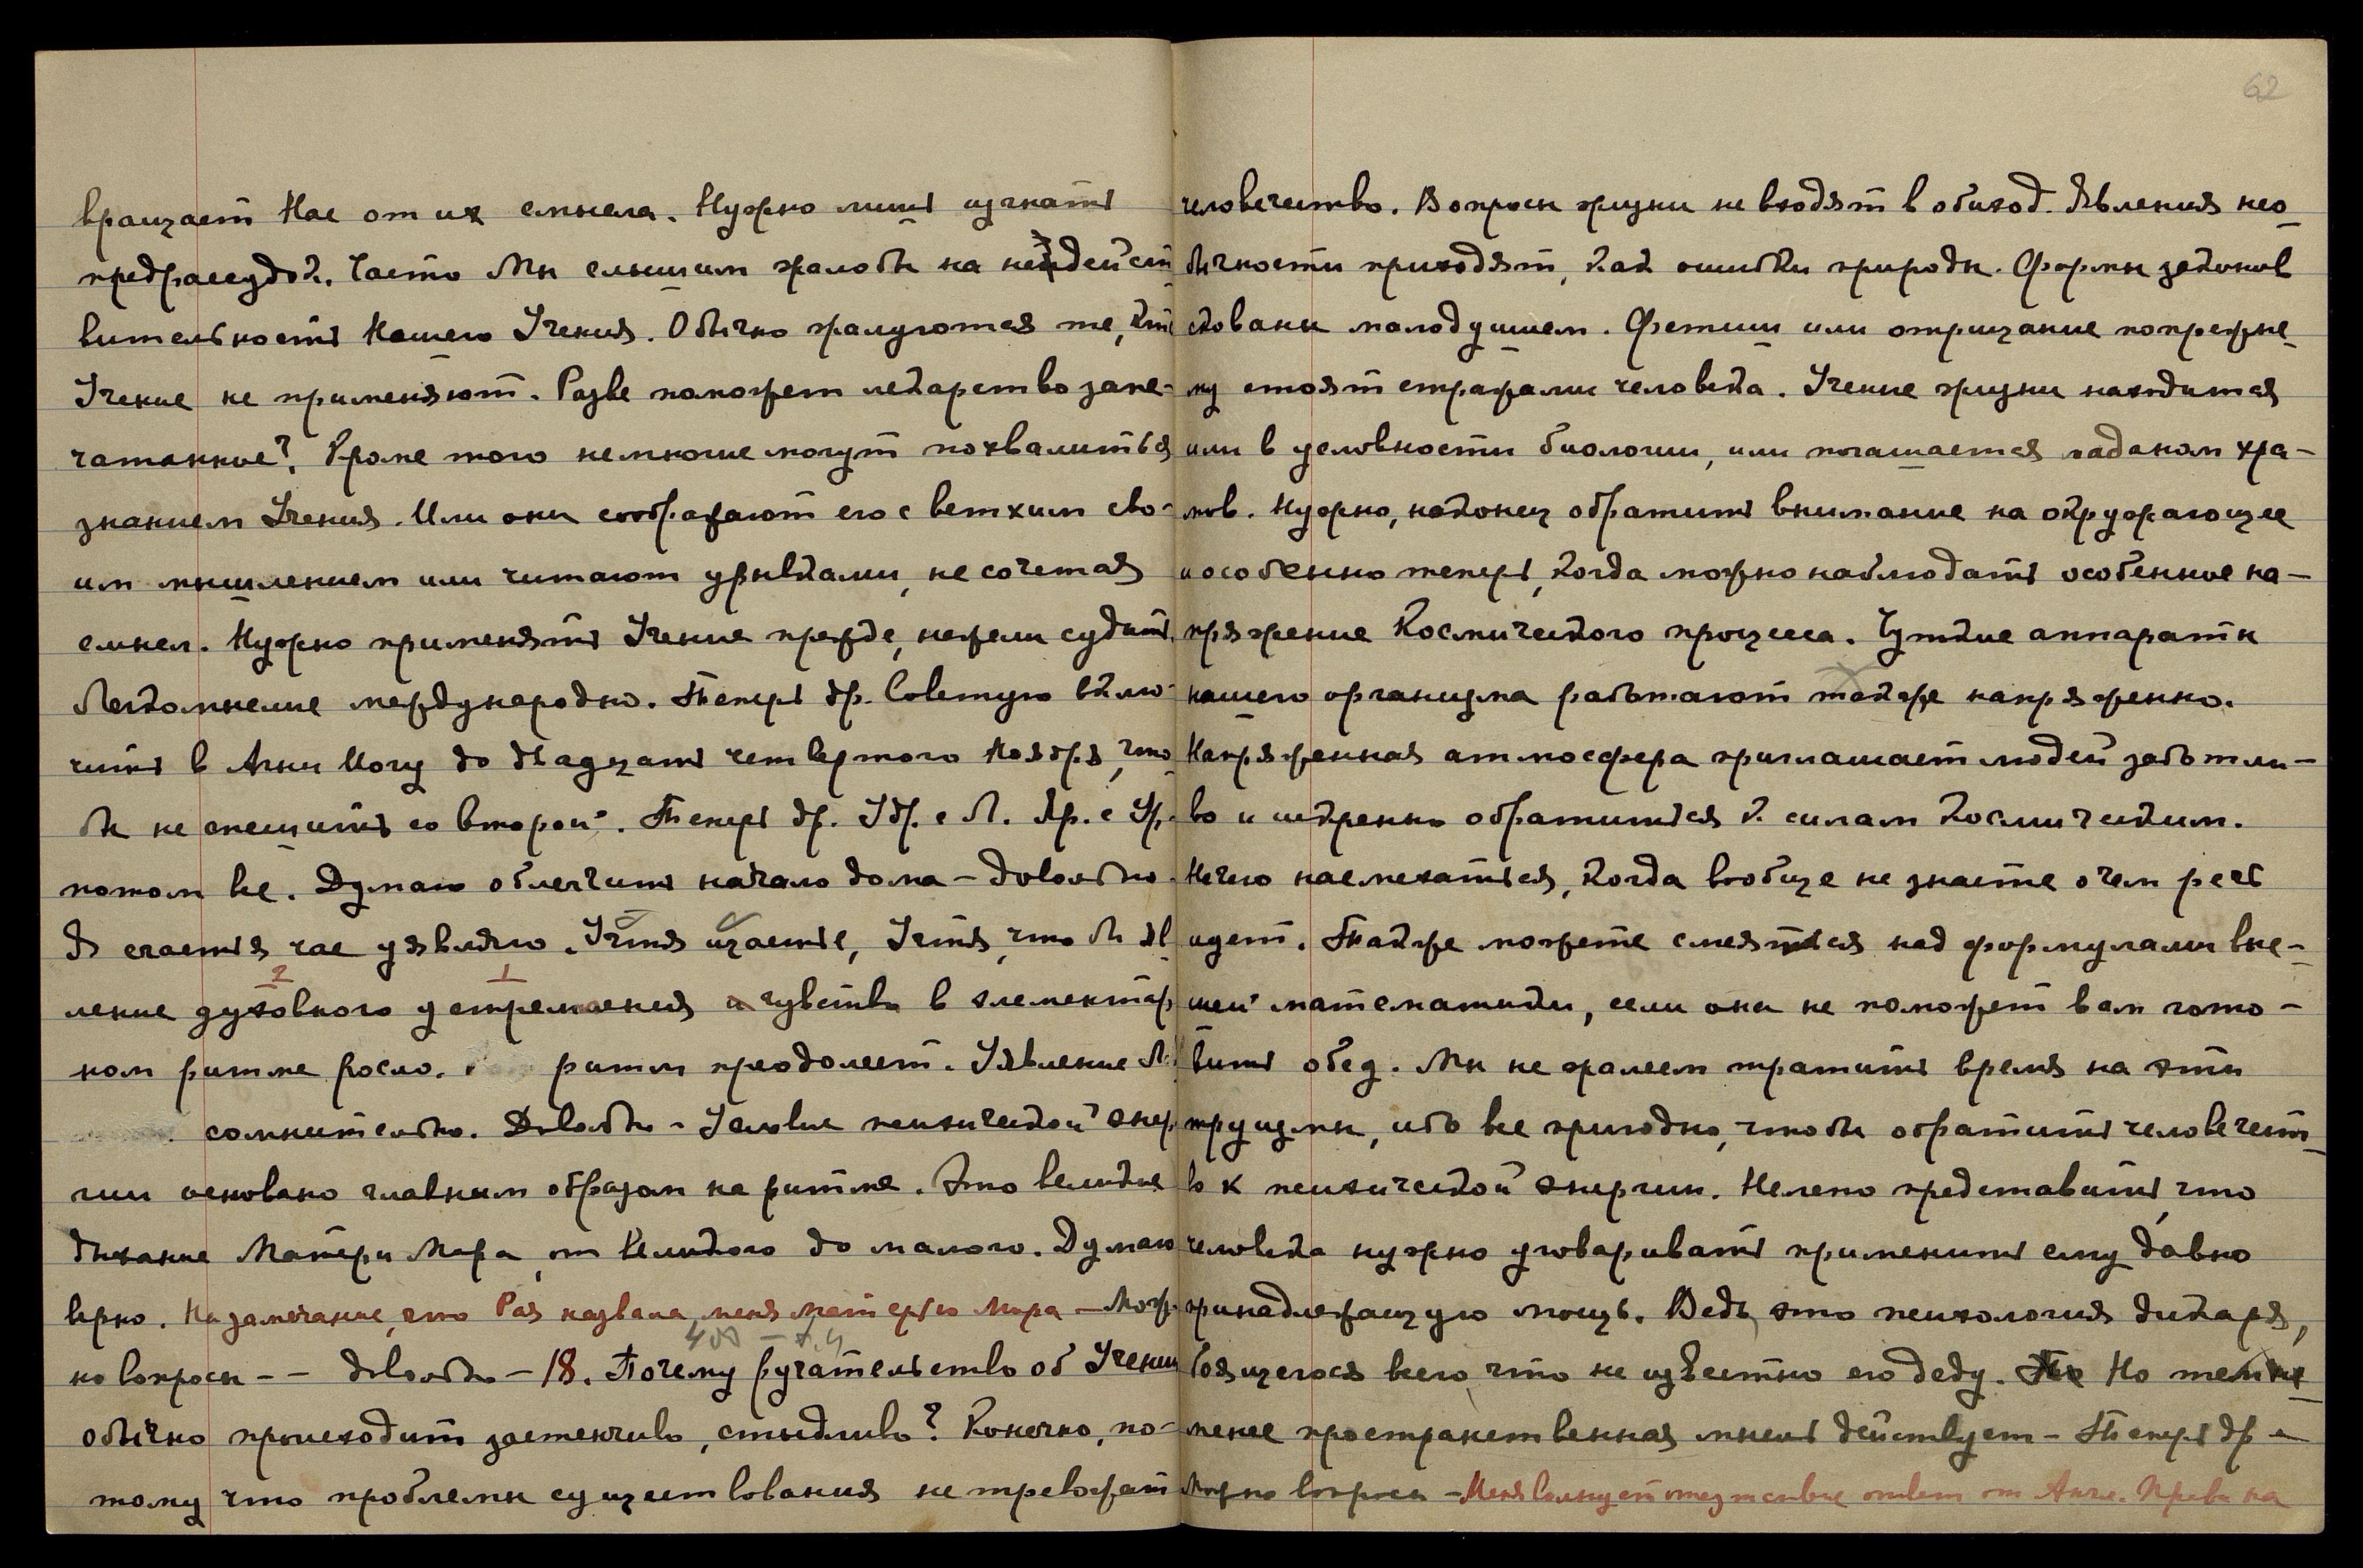 62
вращает Нас от их смысла. Нужно лишь изгнать
предрассудок. Часто Мы слышим жалобы на недейст
вительность Нашего Учения. Обычно жалуются те, кто
Учение не применяют. Разве поможет лекарство запе-
чатанное? Кроме того немногие могут похвалиться
знанием Учения. Или они соображают его с ветхим сво-
им мышлением или читают урывками, не сочетая
смысл. Нужно применять Учение прежде, нежели судить.
Легкомыслие международно. Теперь др. Советую вклю-
чить в Агни Йогу до двадцать четвертого Ноября, что
бы не спешить со второй. Теперь др. Удр. с Л. Яр. с Ур.
потом все. Думаю облегчить начало дома – довольно.
Я счастья час уявляю. Учтя счастье, Учтя, что бы яв
2 1
ление духовного устремления и чувства в элементар
ном ритме росло. ритм преодолеет. Уявление Л.
сомнительно. Довольно – Условие психической энер
гии основано главным образом на ритме. Это великое
дыхание Матери Мира, от Великого до малого. Думаю
верно. На замечание, что Рая назвала меня матерью Мира – Мож.
400 – А.Й
но вопросы – – довольно – 18. Почему ручательство об Учении
обычно происходит застенчиво, стыдливо? Конечно, по-
тому что проблемы существования не тревожат
человечество. Вопросы жизни не входят в обиход. Явления нео
бычности приходят, как ошибки природы. Формы законов
скованы малодушием. Фетиш или отрицание попрежне
му стоят стражами человека. Учение жизни находится
или в условности биологии, или погашается ладаном хра-
мов. Нужно, наконец обратить внимание на окружающее
и особенно теперь, когда можно наблюдать особенное на-
пряжение Космического процесса. Чуткие аппараты
нашего организма работают также напряженно.
Напряженная атмосфера приглашает людей заботли-
во и искренно обратиться к силам космическим.
Нечего насмехаться, когда вообще не знаете о чем речь
идет. Также можете смеяться над формулами выс-
шей математики, если она не поможет вам гото-
вить обед. Мы не жалеем тратить время на эти
труизмы, ибо все пригодно, чтобы обратить человечест
во к психической энергии. Нелепо представить, что
человека нужно уговаривать применить ему давно
принадлежащую мощь. Ведь это психология дикаря,
боящегося всего, что не известно его деду. Но тем не
менее пространственная мысль действует – Теперь др –
Можно вопросы – Меня волнует отсутствие ответ от Англ. Прави на